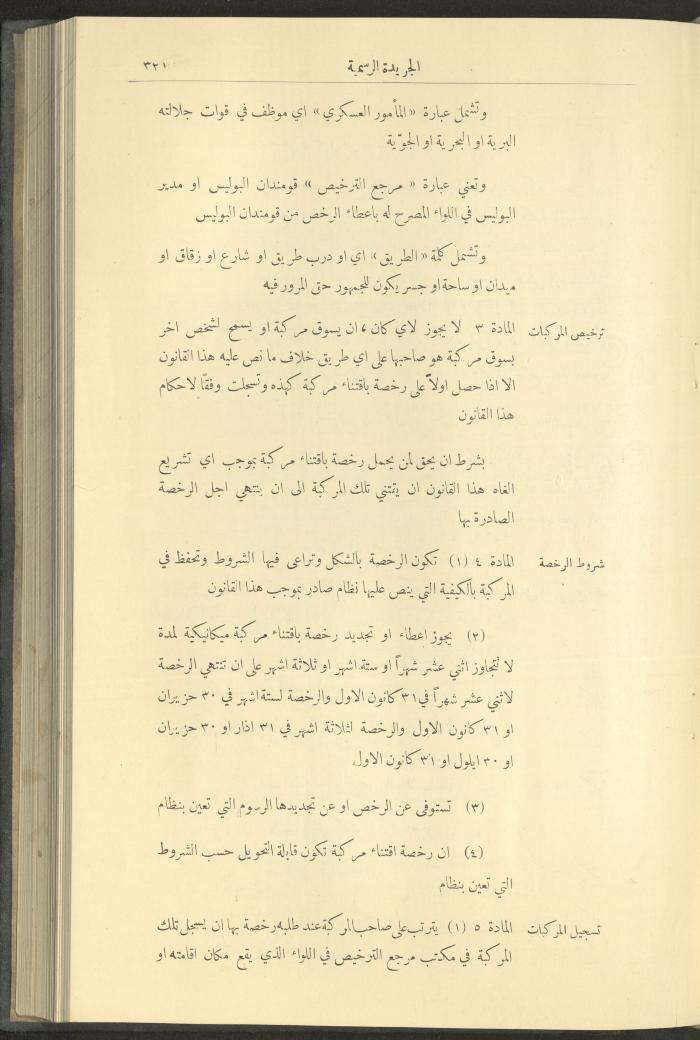 الجريدة الرسمية ٣٢١
وتشمل عبارة «المأمور العسكري» اي موظف في قوات جلالته
البرية او البحرية او الجوّية
وتعني عبارة « مرجع الترخيص » قومندان البوليس او مدير
البوليس في اللواء المصرح له باعطاء الرخص من قومندان البوليس
وتشمل كلمة « الطريق » اي او درب طريق او شارع او زقاق او
ميدان او ساحة او جسر يكون للجمهور حق المرور فيه
ترخيص المركبات المادة ٣ لا يجوز لاي كان ، ان يسوق مركبة او يسمح لشخص اخر
بسوق مركبة هو صاحبها على اي طريق خلاف ما نص عليه هذا القانون
الا اذا حصل اولاً على رخصة باقتناء مركبة كهذه وتسجلت وفقاً لاحكام
هذا القانون
بشرط ان يحق لمن يحمل رخصة باقتناء مركبة بموجب اي تشريع
الغاه هذا القانون ان يقتني تلك المركبة الى ان ينتهي اجل الرخصة
الصادرة بها
شروط الرخصة المادة ٤ (١) تكون الرخصة بالشكل وتراعى فيها الشروط وتحفظ في
المركبة بالكيفية التي ينص عليها نظام صادر بموجب هذا القانون
(٢) يجوز اعطاء او تجديد رخصة باقتناء مركبة ميكانيكية لمدة
لا تتجاوز اثني عشر شهراً او ستة اشهر او ثلاثة اشهر على ان تنتهي الرخصة
لاثني عشر شهراً في ٣١ كانون الاول والرخصة لستة اشهر في ٣٠ حزيران
او ٣١ كانون الاول والرخصة لثلاثة اشهر في ٣١ اذار او ٣٠ حزيران
او ٣٠ ايلول او ٣١ كانون الاول
(٣) تستوفى عن الرخص او عن تجديدها الرسوم التي تعين بنظام
(٤) ان رخصة اقتناء مركبة تكون قابلة التحويل حسب الشروط
التي تعين بنظام
تسجيل المركبات المادة ٥ (١) يترتب على صاحب المركبة عند طلبه رخصة بها ان يسجل تلك
المركبة في مكتب مرجع الترخيص في اللواء الذي يقع مكان اقامته او